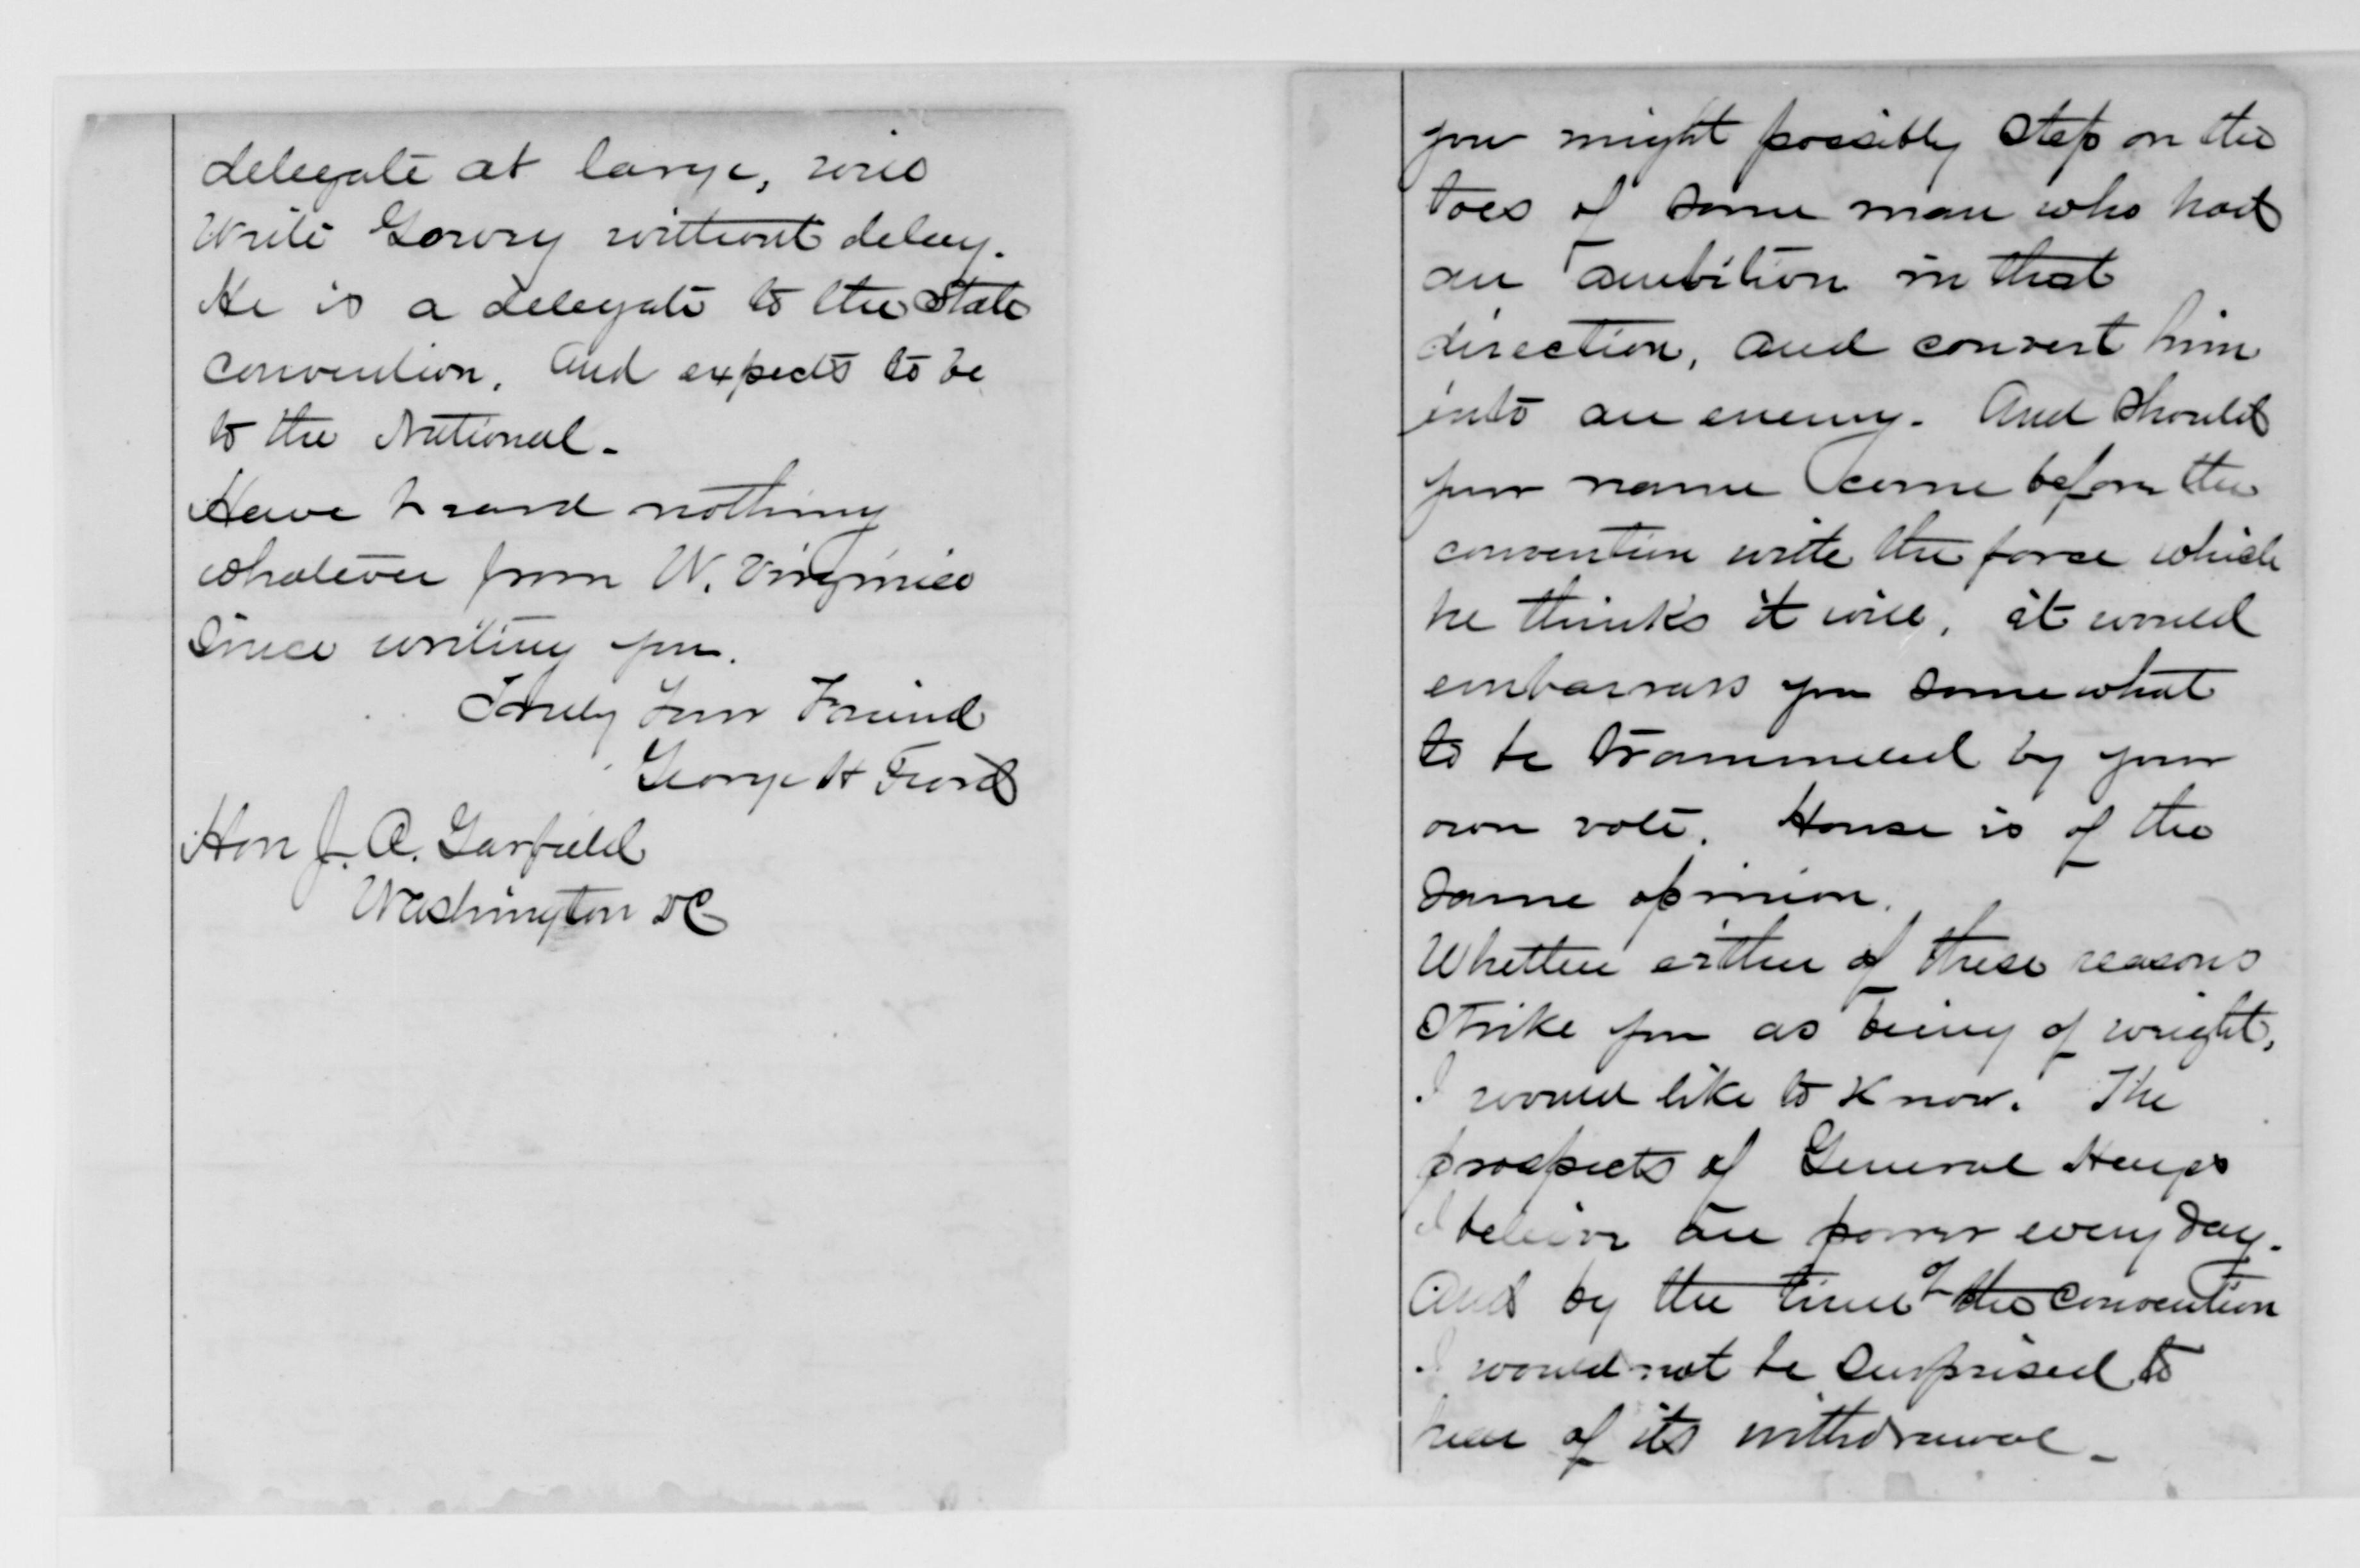 delegate at large, will
write Gowry without delay.
He is a delegate to the State
convention. And expects to be
to the National.
Have heard nothing
whatever from W. Virginia
since writing you.
Truly Your Friend
George H Ford
Hon J. A. Garfield
Washington DC
you might possibly step on the
toes of some man who had
an ambition in that
direction, and convert him
into an enemy. And should
your name come before the
convention with the force which
he thinks it will, it would
embarrass you somewhat
to be trammeled by your
own vote. House is of the
same opinion.
Whether either of these reasons
strike you as being of weight,
I would like to know. The
prospects of General Hayes
I believe are poorer every day.
And by the time of the convention
I would not be surprised to
hear of its withdrawal.